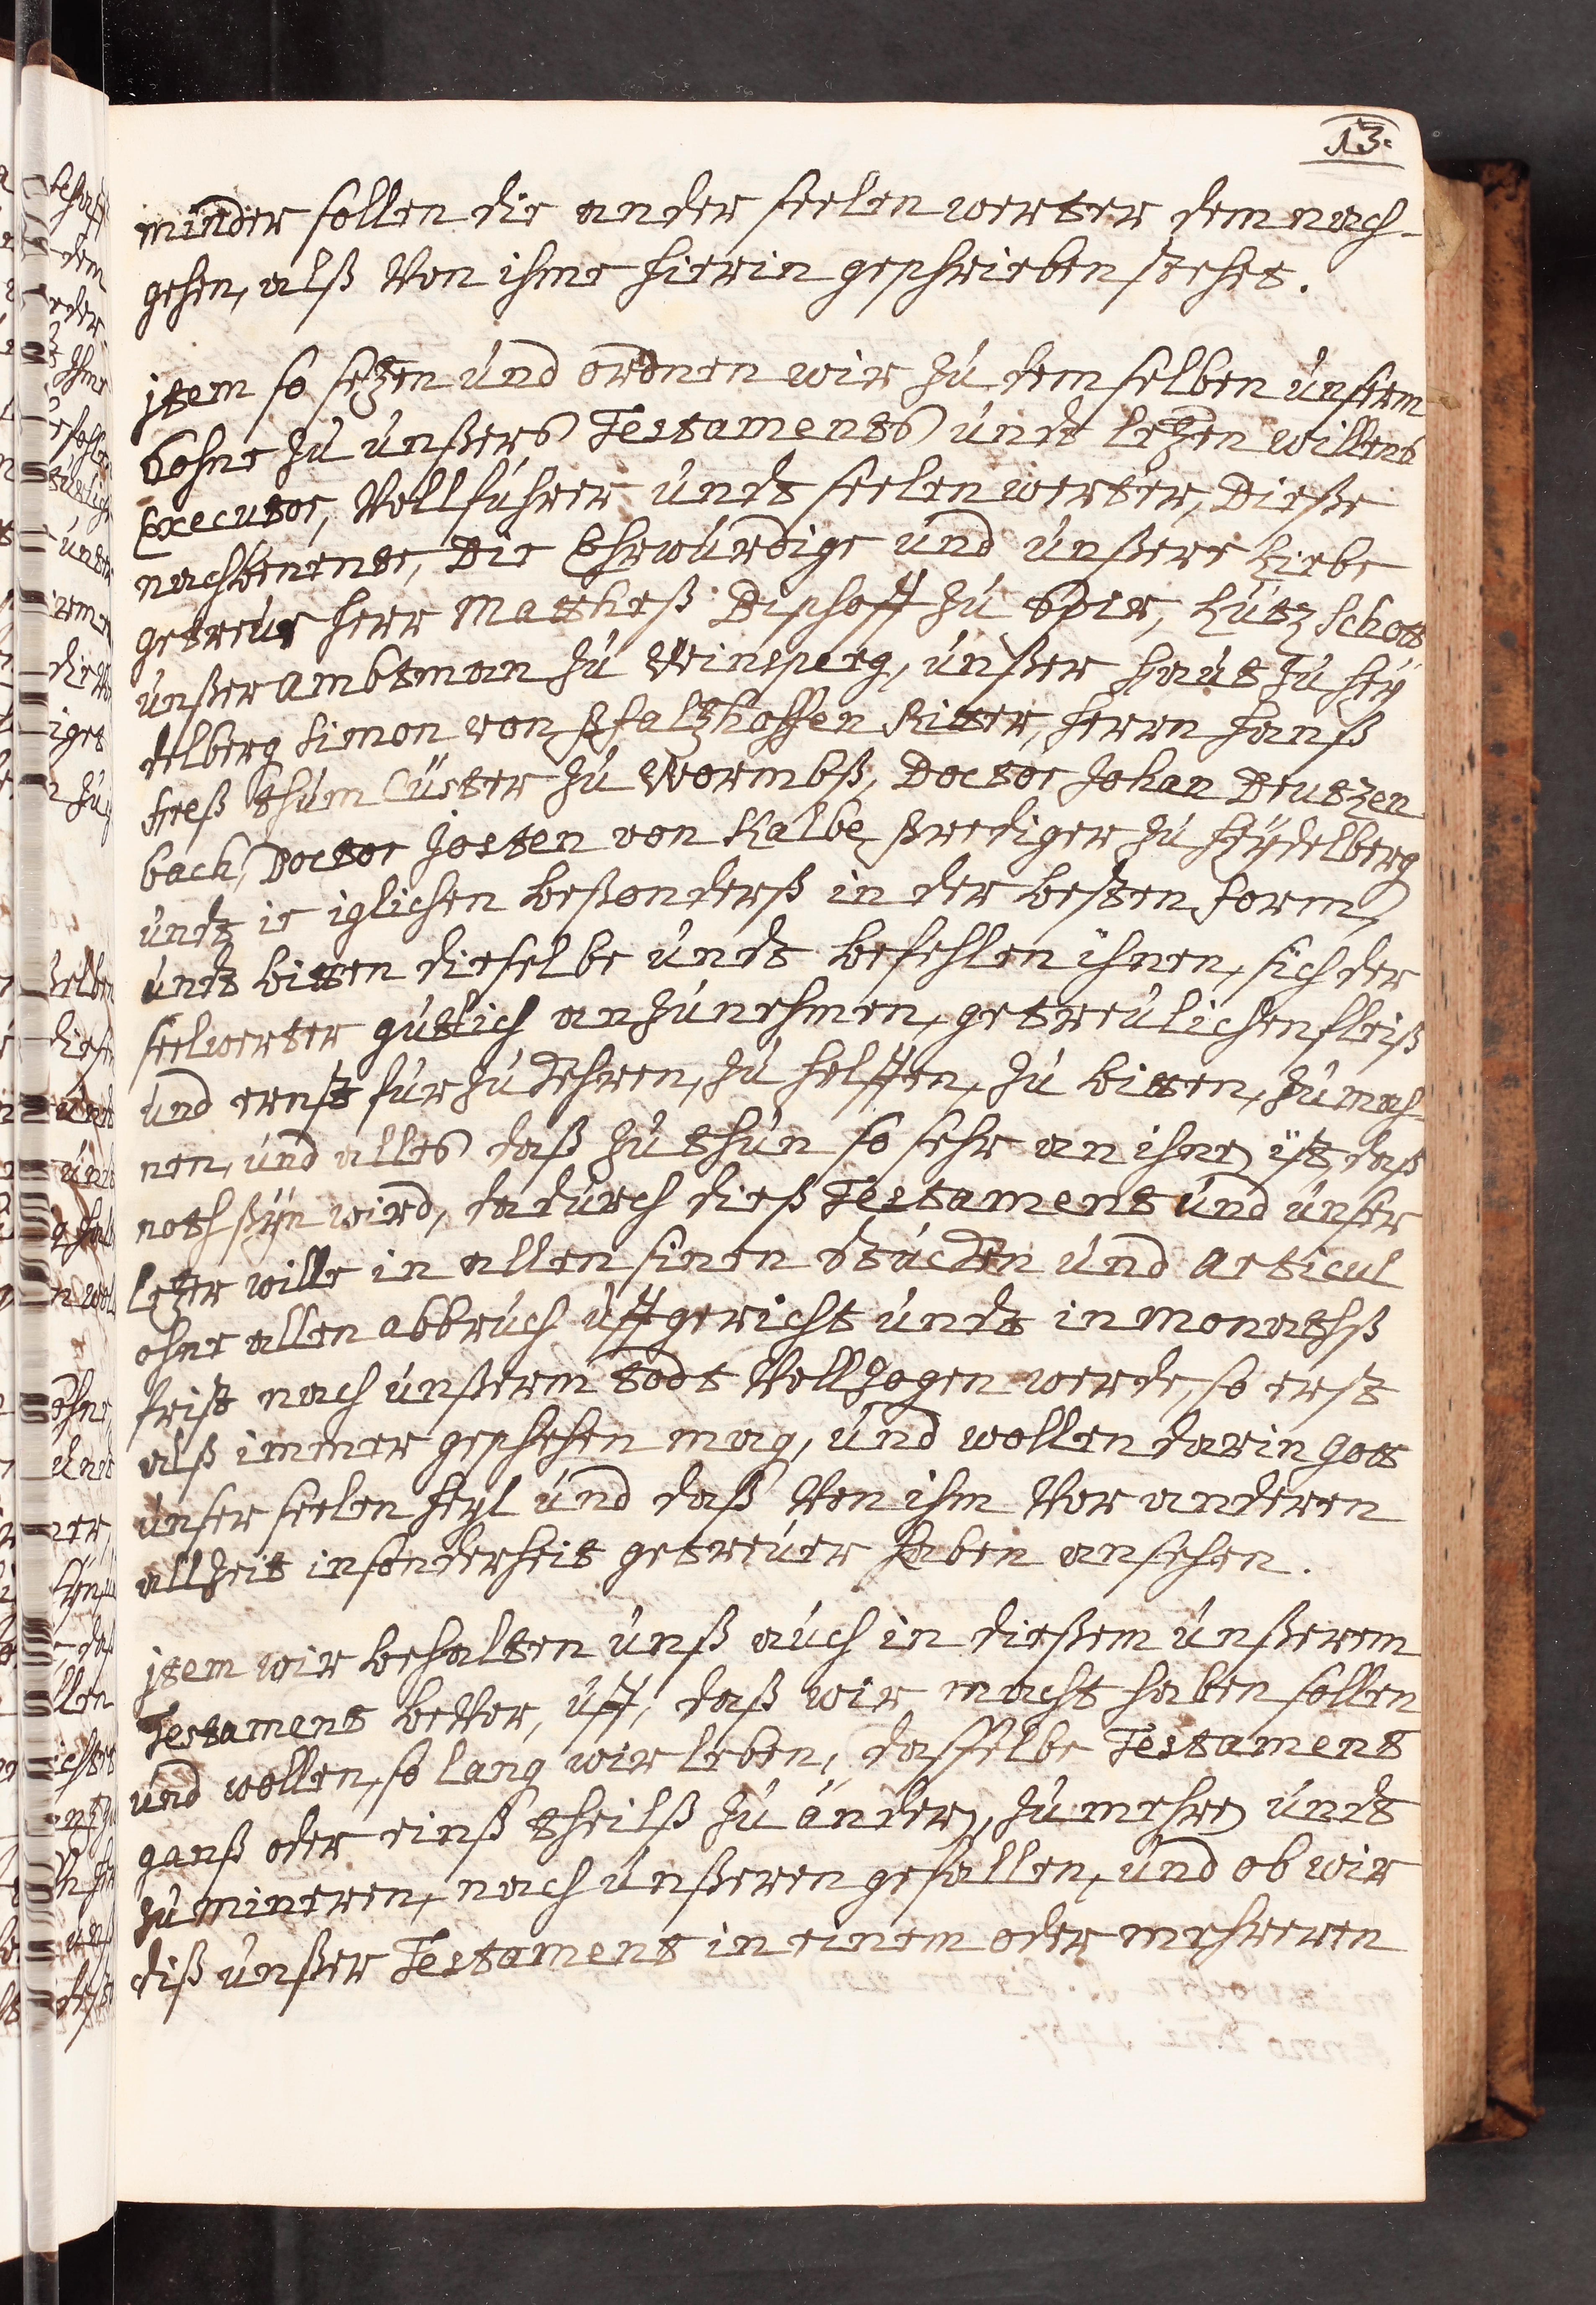 13.
minder sollen die ander seelen werter dem nach-
gehen, alß von ihme hierin geschrieben stehet.
jtem so setzen und ordnen wir zu demselben unserm
Sohne zu unßers Testaments undt letzen willens
Executor, Vollführer undt seelen werter, Dieße
nachbenente, Die Ehrwürdige und unßere Liebe
getreue herr Mattheß Bischoff zu Spir, Lutz Schott
unßer ambtman zu Weinsperg, unßer haut zu Hey
delberg Simon von Pfaltzhoffen Ritter, herrn Hanß
hreß thum Cüster zu Wormbß, Doctor Johan Deutzen
bach, Doctor Josten von Kalbe prediger zu Heydelberg
undt ie iglichen beßonderß in der besten form,
undt bitten dieselbe undt befehlen ihnen, sich der
seelwerter gutlich anzunehmen, getreulichen fleiß
und ernst fur zu kehren, zu helffen, zu bitten, zu mah-
nen, und alles daß zu thun so sehr an ihnen ist, daß
noth ßeÿn wird, dadurch dieß Testament und unser
letzer wille in allen sinen Stücken und Articul
ohne allen abbruch uffgericht undt in monathß
frist nach unßerm todt Vollzogen werde, so erst
alß immer geschehen mag, und wollen darin Gott
unser seelen heyl und daß von ihm vor anderen
allzeit insonderheit getreuer haben ansehen.
jtem wir behalten unß auch in dießem unßerem
Testament bevor, uff, daß wir macht haben sollen
und wollen, so lang wir leben, dasselbe Testament
ganß oder einß theilß zu änderen, zu mehren undt
zu mineren, nach unßeren gefallen, und ob wir
diß unßer Testament in einem oder mehreren